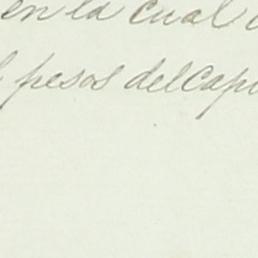 en la cual
pesos del Capi